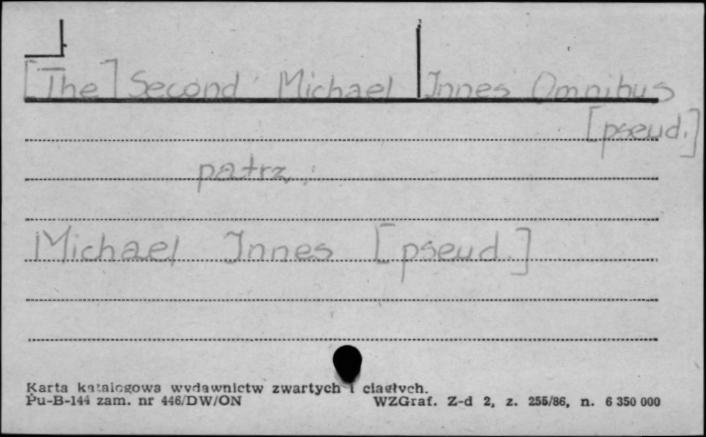 [The] Second Michael Innes Omnibus
[pseud.]
patrz:
Michael Innes [pseud.]
Karta katalogowa wydawnictw zwartych i ciągłych.
Pu-B-144 zam. nr 446/DW/ON WZGraf. Z-d 2, z. 255/86, n. 6 350 000